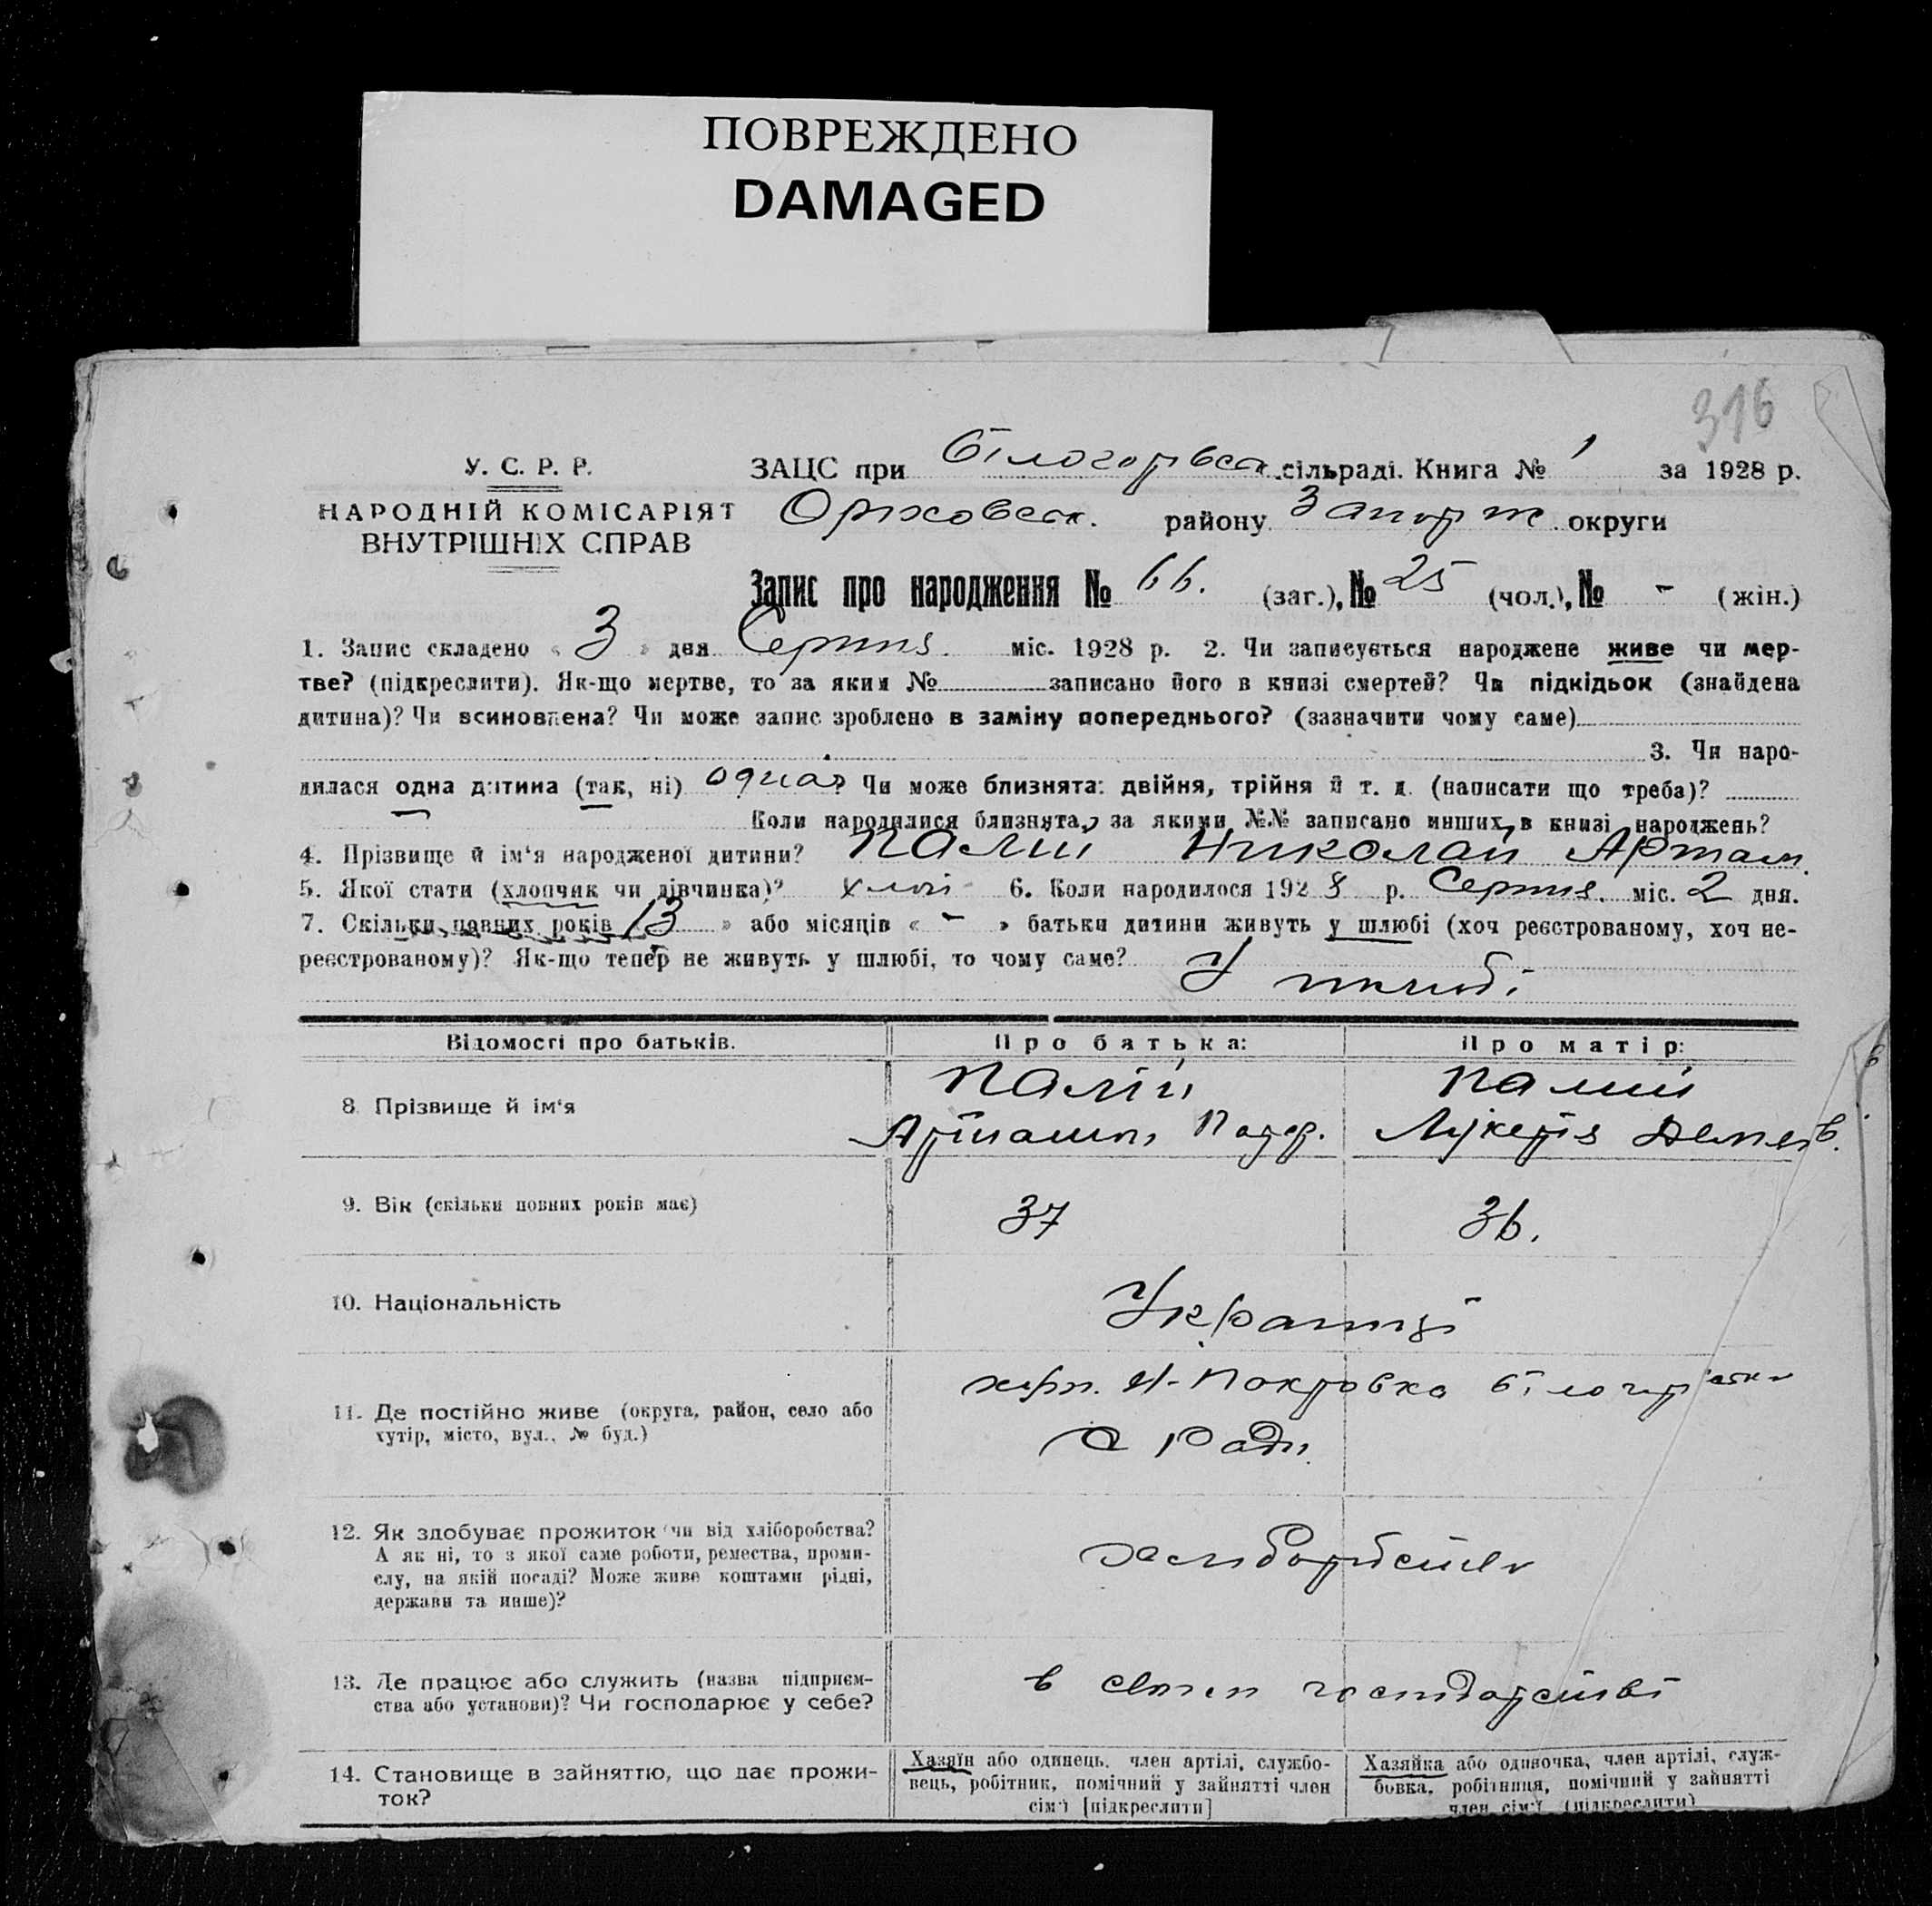 ПОВРЕЖДЕНО
DAMAGED
316
У. С. Р. Р.
НАРОДНІЙ КОМІСАРІЯТ
ВНУТРІШНІХ СПРАВ
ЗАЦС при Білогорівськ. сільраді. Книга № 1 за 1928 р.
Оріховськ. району Запоріж округи
Запис про народження № 66. (заг.), № 25 (чол.), № - (жін.)
1. Запис складено « 3 » дня Серпня. міс. 1928 р. 2. Чи записується народжене живе чи мер-
тве? (підкреслити). Як-що мертве, то за яким № записано його в книзі смертей? Чи підкідьок (знайдена
дитина)? Чи всиновлена? Чи може запис зроблено в заміну попереднього? (зазначити чому саме)
3. Чи наро-
дилася одна дитина (так, ні) одна? Чи може близнята: двійня, трійня й т. д. (написати що треба)?
Коли народилися близнята, за якими №№ записано инших в книзі народжень?
4. Прізвище й ім'я народженої дитини? Палій Николай Артам.
5. Якої стати (хлопчик чи дівчинка)? хлоп 6. Коли народилося 1928 р. Серпня. міс. 2 дня.
7. Скільки повних років 13 » або місяців « - » батьки дитини живуть у шлюбі (хоч реєстрованому, хоч не-
реєстрованому)? Як-що тепер не живуть у шлюбі, то чому саме?
У шлюбі
Відомості про батьків.
Про батька:
Про матір:
8. Прізвище й ім'я
Палій
Палий
Лукерія
9. Вік (скільки повних років має)
37
36.
10. Національність
Украінці
11. Де постійно живе (округа, район, село або
хутір, місто, вул., № буд.)
Н-Покровка
с Ради
12. Як здобуває прожиток чи від хліборобства?
А як ні, то з якої саме роботи, ремества, проми-
слу, на якій посаді? Може живе коштами рідні,
держави та инше)?
13. Де працює або служить (назва підприєм-
ства або установи)? Чи господарює у себе?
в своєм господарстві
14. Становище в зайняттю, що дає прожи-
ток?
Хазяїн або одинець, член артілі, службо-
вець, робітник, помічний у зайнятті член
сім'ї [підкреслити]
Хазяйка або одиночка, член артілі, служ-
бовка, робітниця, помічний у зайнятті
член сім'ї (підкреслити)